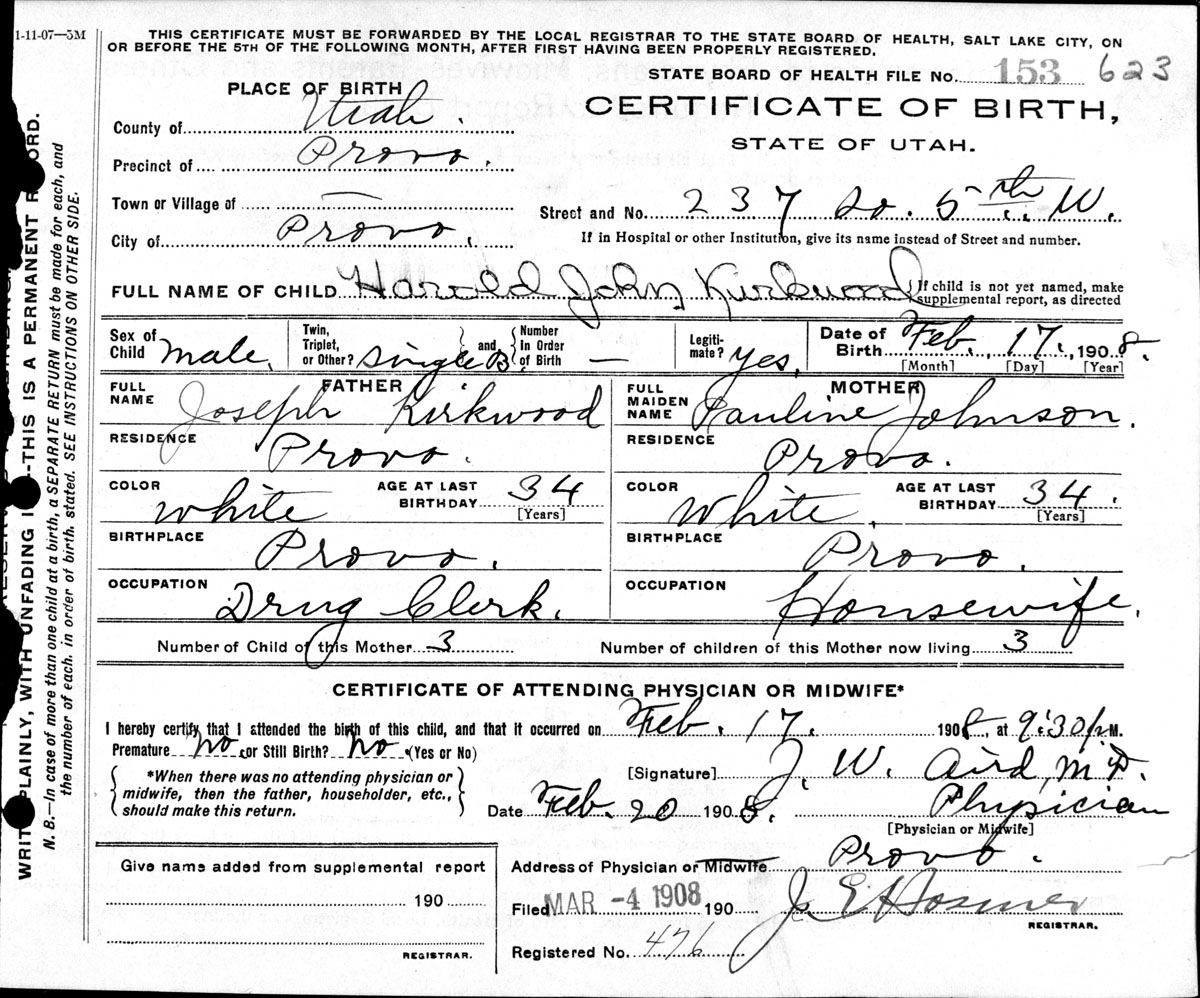 1-11-07—5M
THIS CERTIFICATE MUST BE FORWARDED BY THE LOCAL REGISTRAR TO THE STATE BOARD OF HEALTH, SALT LAKE CITY, ON
OR BEFORE THE 5TH OF THE FOLLOWING MONTH, AFTER FIRST HAVING BEEN PROPERLY REGISTERED.
STATE BOARD OF HEALTH FILE No. 153 623
PLACE OF BIRTH
CERTIFICATE OF BIRTH,
STATE OF UTAH.
County of Utah.
Precinct of Provo.
Town or Village of —
Street and No. 237 So. 5th W.
City of Provo.
If in Hospital or other Institution, give its name instead of Street and number.
FULL NAME OF CHILD Harold John Kirkwood
If child is not yet named, make
supplemental report, as directed
Sex of Child male. Twin, Triplet, or Other? single B. and Number In Order of Birth — Legiti-mate? yes. Date of Birth Feb., 17., 1908.
[Month] [Day] [Year]
FATHER
MOTHER
FULL NAME Joseph Kirkwood
FULL MAIDEN NAME Pauline Johnson.
RESIDENCE Provo.
RESIDENCE Provo.
COLOR White AGE AT LAST BIRTHDAY 34 [Years]
COLOR White. AGE AT LAST BIRTHDAY 34. [Years]
BIRTHPLACE Provo.
BIRTHPLACE Provo.
OCCUPATION Drug Clerk.
OCCUPATION Housewife.
Number of Child of this Mother 3
Number of children of this Mother now living 3
CERTIFICATE OF ATTENDING PHYSICIAN OR MIDWIFE*
I hereby certify that I attended the birth of this child, and that it occurred on Feb. 17. 1908, at 9:30 P.M.
Premature No or Still Birth? No (Yes or No)
*When there was no attending physician or
midwife, then the father, householder, etc.,
should make this return.
[Signature] J. W. Aird, M.D.
Date Feb. 20 1908. Physician
[Physician or Midwife]
Address of Physician or Midwife Provo.
Give name added from supplemental report
190
REGISTRAR.
Filed MAR -4 1908 190 Hosmer
REGISTRAR.
Registered No. 476
WRITE PLAINLY, WITH UNFADING INK—THIS IS A PERMANENT RECORD.
N. B.—In case of more than one child at a birth, a SEPARATE RETURN must be made for each, and
the number of each, in order of birth, stated. SEE INSTRUCTIONS ON OTHER SIDE.